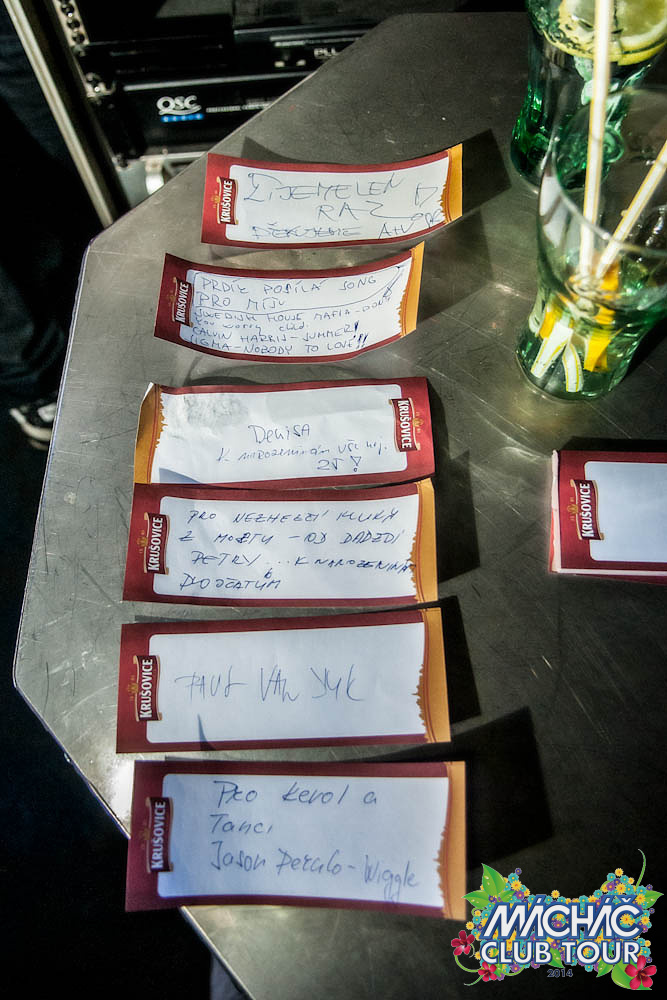 QSC
KRUŠOVICE
ŽIJEME LEN
RAZ
DĚKUJEME
KRUŠOVICE
PRDÍK POSÍLÁ SONG
PRO MÍJU
SWEDISH HOUSE MAFIA - DON'T
YOU WORRY CHILD.
CALVIN HARRIS - SUMMER!
SIGMA - NOBODY TO LOVE!!
KRUŠOVICE
DENISA
K NAROZENINÁM VŠE NEJ.
25!
KRUŠOVICE
PRO NEJHEZČÍ KLUKA
Z MOSTU - OD
PETRY... K NAROZENINÁM
KRUŠOVICE
PAUL VAN DYK
KRUŠOVICE
Pro Kerol a
Tanci
Jason Derulo - Wiggle
KRUŠOVICE
MÁCHÁČ
CLUB TOUR
2014